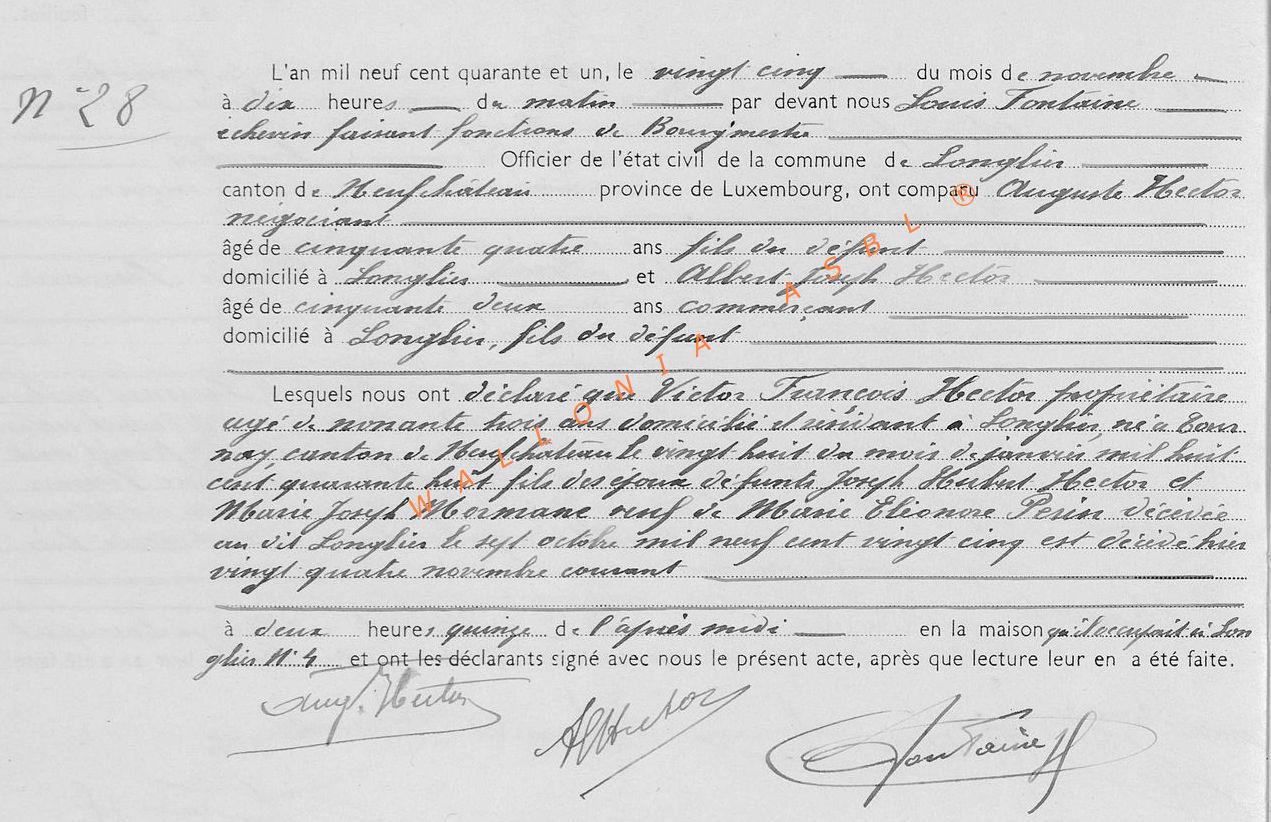 N° 28
L'an mil neuf cent quarante et un, le vingt cinq du mois de novembre
à dix heures du matin par devant nous Louis Fontaine
échevin faisant fonctions de Bourgmestre
Officier de l'état civil de la commune de Longlier
canton de Neufchâteau province de Luxembourg, ont comparu Auguste Hector
négociant
âgé de cinquante quatre ans fils du défunt
domicilié à Longlier et Albert Joseph Hector
âgé de cinquante deux ans commerçant
domicilié à Longlier, fils du défunt
Lesquels nous ont déclaré que Victor François Hector propriétaire
agé de nonante trois ans domicilié et résidant à Longlier, né à Tour
nay canton de Neufchâteau le vingt huit du mois de janvier mil huit
cent quarante huit fils des époux défunts Joseph Hubert Hector et
Marie Joseph Mormane veuf de Marie Eléonore Perin décédée
au dit Longlier le sept octobre mil neuf cent vingt cinq est décédé hier
vingt quatre novembre courant
à deux heures quinze de l'après midi en la maison qu'il occupait à Lon
glier N° 4 et ont les déclarants signé avec nous le présent acte, après que lecture leur en a été faite.
Aug. Hector
Al Hector
Fontaine
WALLONIA ASBL ®